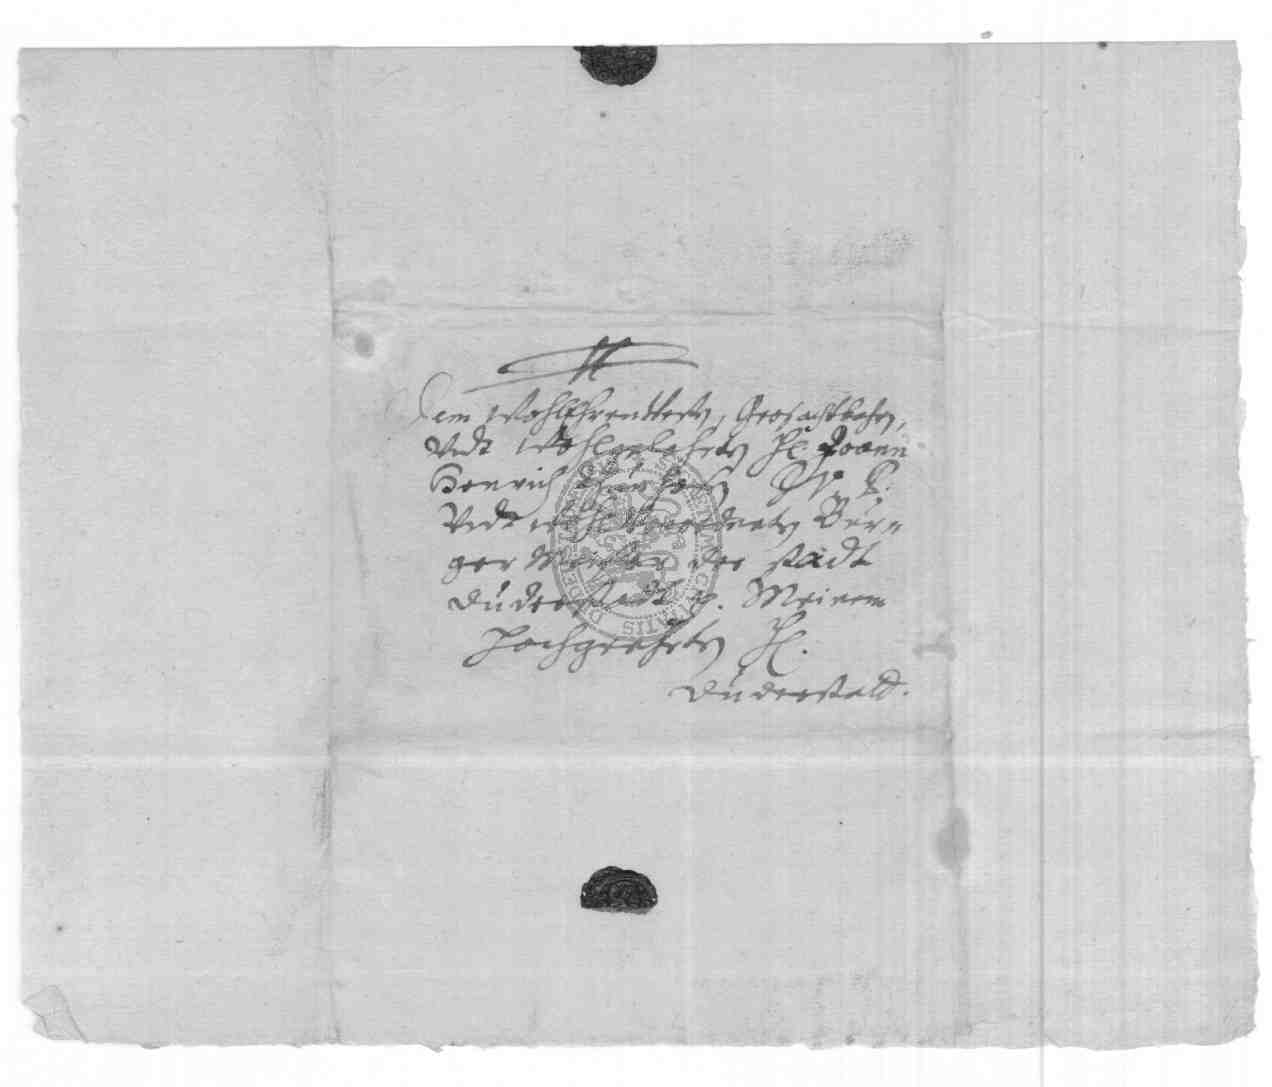 Dem WohlEhrenvesten, Grosachtbahren,
Vndt Wohlgelahrten H. Joann
Henrich
Vndt Wohl Verordneten Bür-
ger Meister der stadt
Duderstadt p. Meinem
Hochgeehrten H.
Duderstadt.